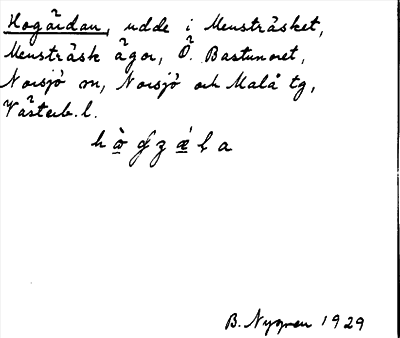 Hogärdan, udde i Mensträsket,
Mensträsk ägor, Ö. Bastunoret,
Norsjö sn, Norsjö och Malå tg,
Västerb. l.
B. Nygren 1929